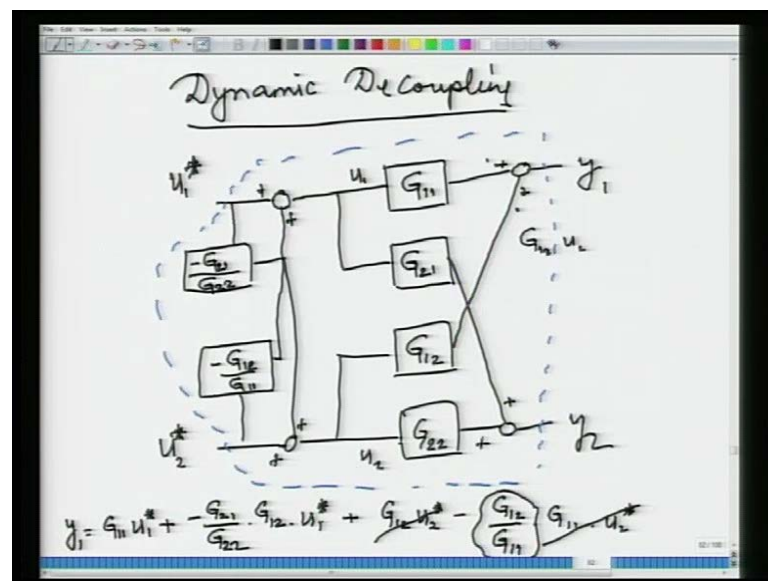 File Edit View Insert Actions Tools Help
Dynamic Decoupling
u₁*
+
+
u₁
G₁₁
+
y₁
-G₂₁/G₂₂
G₂₁
G₁₂ u₂
-G₁₂/G₁₁
G₁₂
u₂*
+
+
u₂
G₂₂
+
+
y₂
y₁ = G₁₁ u₁* + -G₂₁/G₂₂ · G₁₂ · u₁* + G₁₂ u₂* - G₁₂/G₁₁ G₁₁ · u₂*